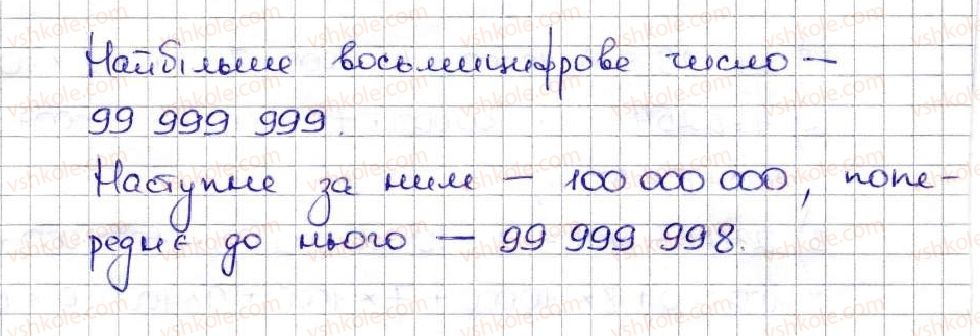 Найбільше восьмицифрове число —
99 999 999.
Наступне за ним — 100 000 000, попе-
реднє до нього — 99 999 998.